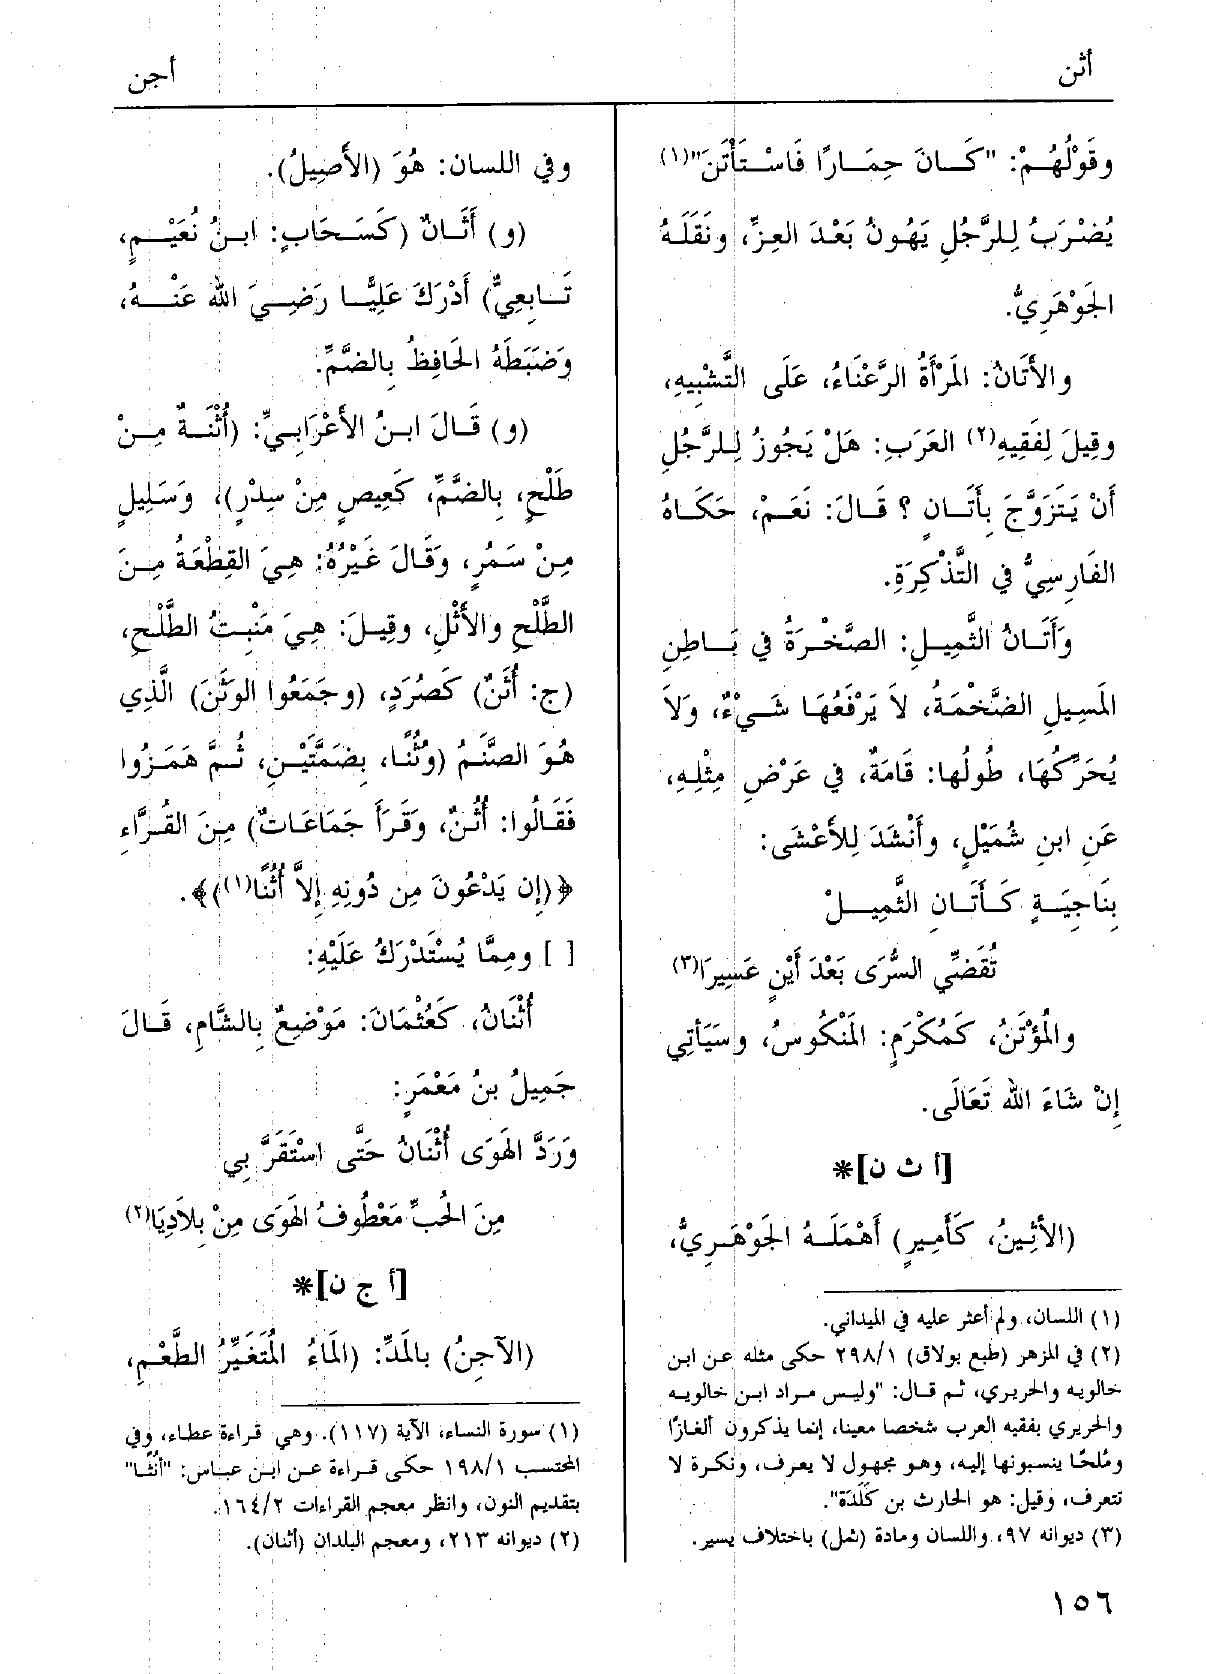 أثن
أجن
وقَوْلُهُمْ: "كَانَ حِمَارًا فَاسْتَأْتَنَ"(١)
يُضْرَبُ لِلرَّجُلِ يَهُونُ بَعْدَ العِزِّ، ونَقَلَهُ
الجَوْهَرِيُّ.
والأَتَانُ: المَرْأَةُ الرَّعْنَاءُ، عَلَى التَّشْبِيهِ،
وقِيلَ لِفَقِيهِ(٢) العَرَبِ: هَلْ يَجُوزُ لِلرَّجُلِ
أَنْ يَتَزَوَّجَ بِأَتَانٍ ؟ قَالَ: نَعَمْ، حَكَاهُ
الفَارِسِيُّ في التَّذْكِرَةِ.
وَأَتَانُ الثَّمِيلِ: الصَّخْرَةُ في بَاطِنِ
المَسِيلِ الضَّخْمَةُ، لاَ يَرْفَعُهَا شَيْءٌ، وَلاَ
يُحَرِّكُهَا، طُولُها: قَامَةٌ، في عَرْضِ مِثْلِهِ،
عَنِ ابنِ شُمَيْلٍ، وأَنْشَدَ لِلأَعْشَى:
بِنَاجِيَةٍ كَأَتَانِ الثَّمِيلْ
تُقَضِّي السُّرَى بَعْدَ أَيْنٍ عَسِيرَا(٣)
والمُؤْتَنُ، كَمُكْرَمٍ: المَنْكُوسُ، وسَيَأتِي
إِنْ شَاءَ الله تَعَالَى.
[أ ث ن]*
(الأَثِينُ، كَأَمِيرٍ) أَهْمَلَهُ الجَوْهَرِيُّ،
(١) اللسان، ولم أعثر عليه في الميداني.
(٢) في المزهر (طبع بولاق) ٢٩٨/١ حكى مثله عن ابن
خالويه والحريري، ثم قال: "وليس مراد ابن خالويه
والحريري بفقيه العرب شخصا معينا، إنما يذكرون ألغازًا
ومُلحًا ينسبونها إليه، وهو مجهول لا يعرف، ونكرة لا
تتعرف، وقيل: هو الحارث بن كَلَدَة".
(٣) ديوانه ٩٧، واللسان ومادة (ثمل) باختلاف يسير.
وفي اللسان: هُوَ (الأَصِيلُ).
(و) أَثَانٌ (كَسَحَابٍ: ابنُ نُعَيْمٍ،
تَابِعِيٌّ) أَدْرَكَ عَلِيًّا رَضِيَ الله عَنْهُ،
وَضَبَطَهُ الحَافِظُ بِالضَّمِّ.
(و) قَالَ ابنُ الأَعْرَابِيِّ: (أُثْنَةٌ مِنْ
طَلْحٍ، بِالضَّمِّ، كَعِيصٍ مِنْ سِدْرٍ)، وَسَلِيلٍ
مِنْ سَمُرٍ، وَقَالَ غَيْرُهُ: هِيَ القِطْعَةُ مِنَ
الطَّلْحِ والأَثْلِ، وقِيلَ: هِيَ مَنْبِتُ الطَّلْحِ،
(ج: أُثَنٌ) كَصُرَدٍ، (وجَمَعُوا الوَثَنَ) الَّذِي
هُوَ الصَّنَمُ (وُثُنًا، بِضَمَّتَيْنِ، ثُمَّ هَمَزُوا
فَقَالُوا: أُثُنٌ، وَقَرَأَ جَمَاعَاتٌ) مِنَ القُرَّاءِ
﴿(إِن يَدْعُونَ مِن دُونِهِ إِلاَّ أُثُنًا(١))﴾.
[ ] ومِمَّا يُسْتَدْرَكُ عَلَيْهِ:
أُثْنَانُ، كَعُثْمَانَ: مَوْضِعٌ بِالشَّامِ، قَالَ
جَمِيلُ بنُ مَعْمَرٍ:
وَرَدَّ الهَوَى أُثْنَانُ حَتَّى اسْتَقَرَّ بِي
مِنَ الحُبِّ مَعْطُوفُ الهَوَى مِنْ بِلاَدِيَا(٢)
[أ ج ن]*
(الآجِنُ) بالمَدِّ: (المَاءُ المُتَغَيِّرُ الطَّعْمِ،
(١) سورة النساء، الآية (١١٧). وهي قراءة عطاء، وفي
المحتسب ١٩٨/١ حكى قراءة عن ابن عباس: "أُنُثًا"
بتقديم النون، وانظر معجم القراءات ١٦٤/٢.
(٢) ديوانه ٢١٣، ومعجم البلدان (أثنان).
١٥٦